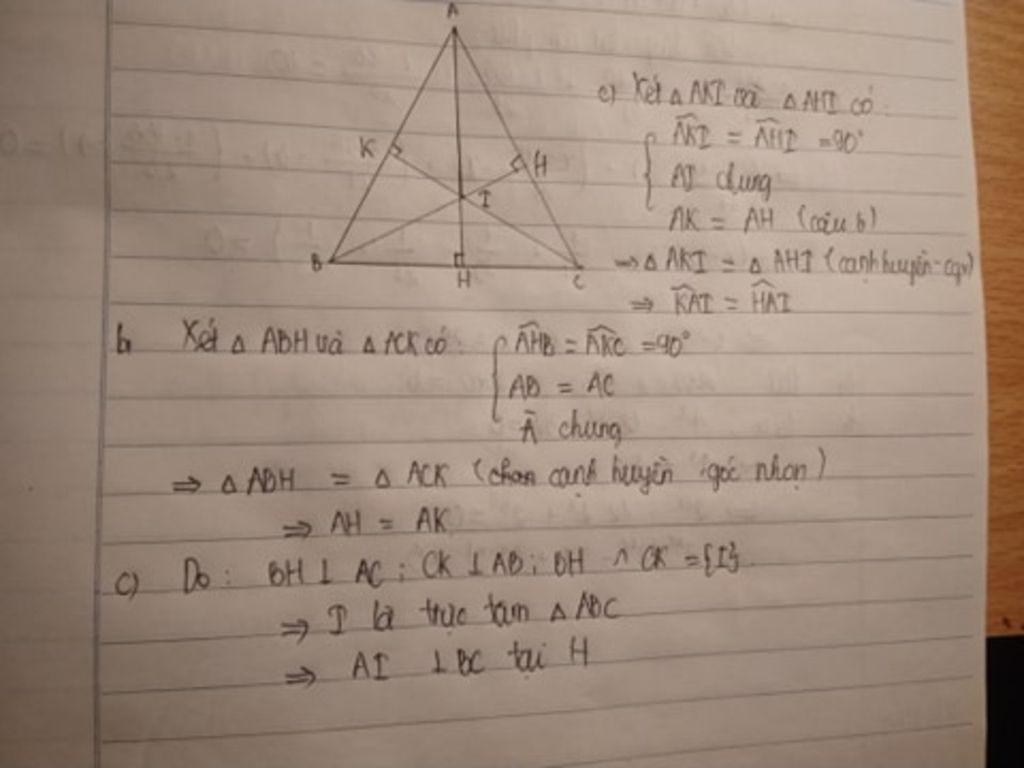 A
K
H
I
B
H
C
c) Xét △ AKI và △ AHI có
{ \widehat{AKI} = \widehat{AHI} = 90°
AI chung
AK = AH (câu b)
⇒ △ AKI = △ AHI (cạnh huyền - cgv)
⇒ \widehat{KAI} = \widehat{HAI}
b, Xét △ ABH và △ ACK có: { \widehat{AHB} = \widehat{AKC} = 90°
AB = AC
Â chung
⇒ △ ABH = △ ACK ( cạnh huyền góc nhọn )
⇒ AH = AK
c) Do : BH ⊥ AC ; CK ⊥ AB ; BH ∩ CK = {I}
⇒ I là trực tâm △ ABC
⇒ AI ⊥ BC tại H